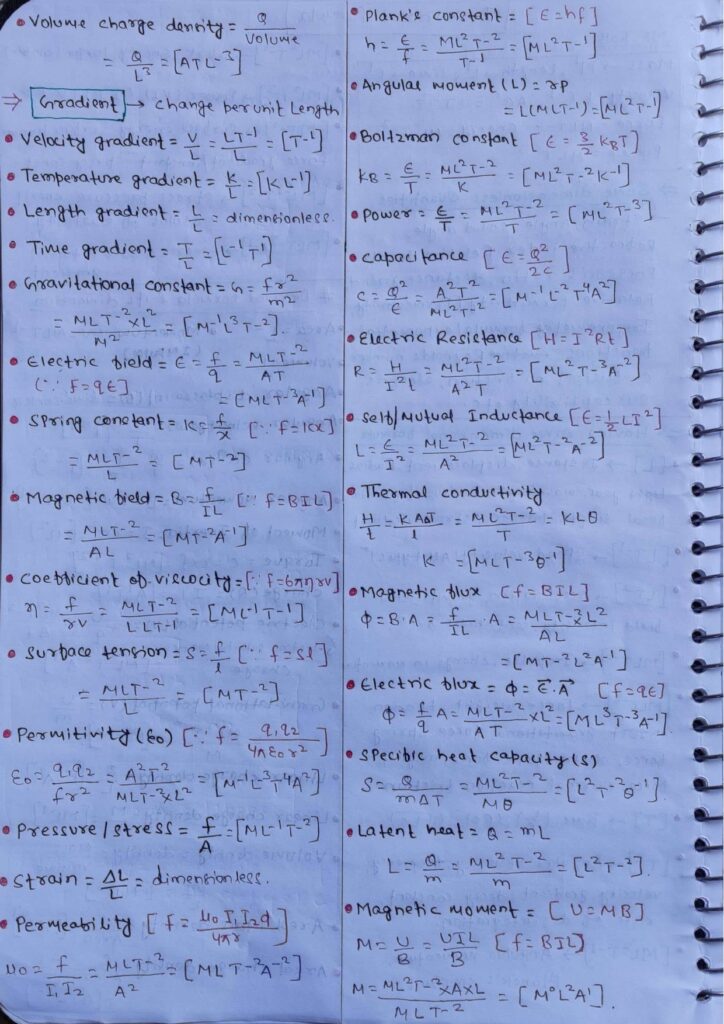 • Volume charge density = Q/Volume
= Q/L³ = [ATL⁻³]
⇒ Gradient → change per unit Length
• Velocity gradient = V/L = LT⁻¹/L = [T⁻¹]
• Temperature gradient = K/L = [KL⁻¹]
• Length gradient = L/L = dimensionless.
• Time gradient = T/L = [L⁻¹T¹]
• Gravitational constant = G = fr²/m²
= MLT⁻²×L²/M² = [M⁻¹L³T⁻²].
• Electric field = E = f/q = MLT⁻²/AT
(∵ f=qE] = [MLT⁻³A⁻¹]
• Spring constant = K = f/x [∵ f=Kx]
= MLT⁻²/L = [MT⁻²]
• Magnetic field = B = f/IL [∵ f=BIL]
= MLT⁻²/AL = [MT⁻²A⁻¹]
• Coefficient of viscocity = [∵ f=6πηrv]
η = f/rv = MLT⁻²/LLT⁻¹ = [ML⁻¹T⁻¹]
• Surface tension = S = f/l [∵ f=Sl]
= MLT⁻²/L = [MT⁻²]
• Permitivity (ε₀) [∵ f = q₁q₂/4πε₀r²]
ε₀ = q₁q₂/fr² = A²T²/MLT⁻²×L² = [M⁻¹L⁻³T⁴A²]
• Pressure / stress = f/A = [ML⁻¹T⁻²]
• Strain = ΔL/L = dimensionless.
• Permeability [f = μ₀I₁I₂q/4πr]
μ₀ = f/I₁I₂ = MLT⁻²/A² = [MLT⁻²A⁻²]
• Plank's constant = [E=hf]
h = E/f = ML²T⁻²/T⁻¹ = [ML²T⁻¹]
• Angular moment (L) = rp
= L(MLT⁻¹) = [ML²T⁻¹]
• Boltzman constant [E = 3/2 K_BT]
K_B = E/T = ML²T⁻²/K = [ML²T⁻²K⁻¹]
• Power = E/T = ML²T⁻²/T = [ML²T⁻³]
• Capacitance [E = Q²/2C]
C = Q²/E = A²T²/ML²T⁻² = [M⁻¹L⁻²T⁴A²]
• Electric Resistance [H=I²Rt]
R = H/I²t = ML²T⁻²/A²T = [ML²T⁻³A⁻²]
• Self/Mutual Inductance [E=½LI²]
L = E/I² = ML²T⁻²/A² = [ML²T⁻²A⁻²]
• Thermal conductivity
H/t = KAΔT/l = ML²T⁻²/T = KLθ
K = [MLT⁻³θ⁻¹]
• Magnetic flux [f=BIL]
Φ = B·A = f/IL · A = MLT⁻²L²/AL
= [MT⁻²L²A⁻¹]
• Electric flux = Φ = E⃗.A⃗ [f=qE]
Φ = f/q A = MLT⁻²/AT ×L² = [ML³T⁻³A⁻¹].
• Specific heat capacity (S)
S = Q/mΔT = ML²T⁻²/Mθ = [L²T⁻²θ⁻¹].
• Latent heat = Q = mL
L = Q/m = ML²T⁻²/m = [L²T⁻²].
• Magnetic moment = [U=MB]
M = U/B = UIL/B [f=BIL]
M = ML²T⁻²×A×L/MLT⁻² = [M⁰L²A¹].